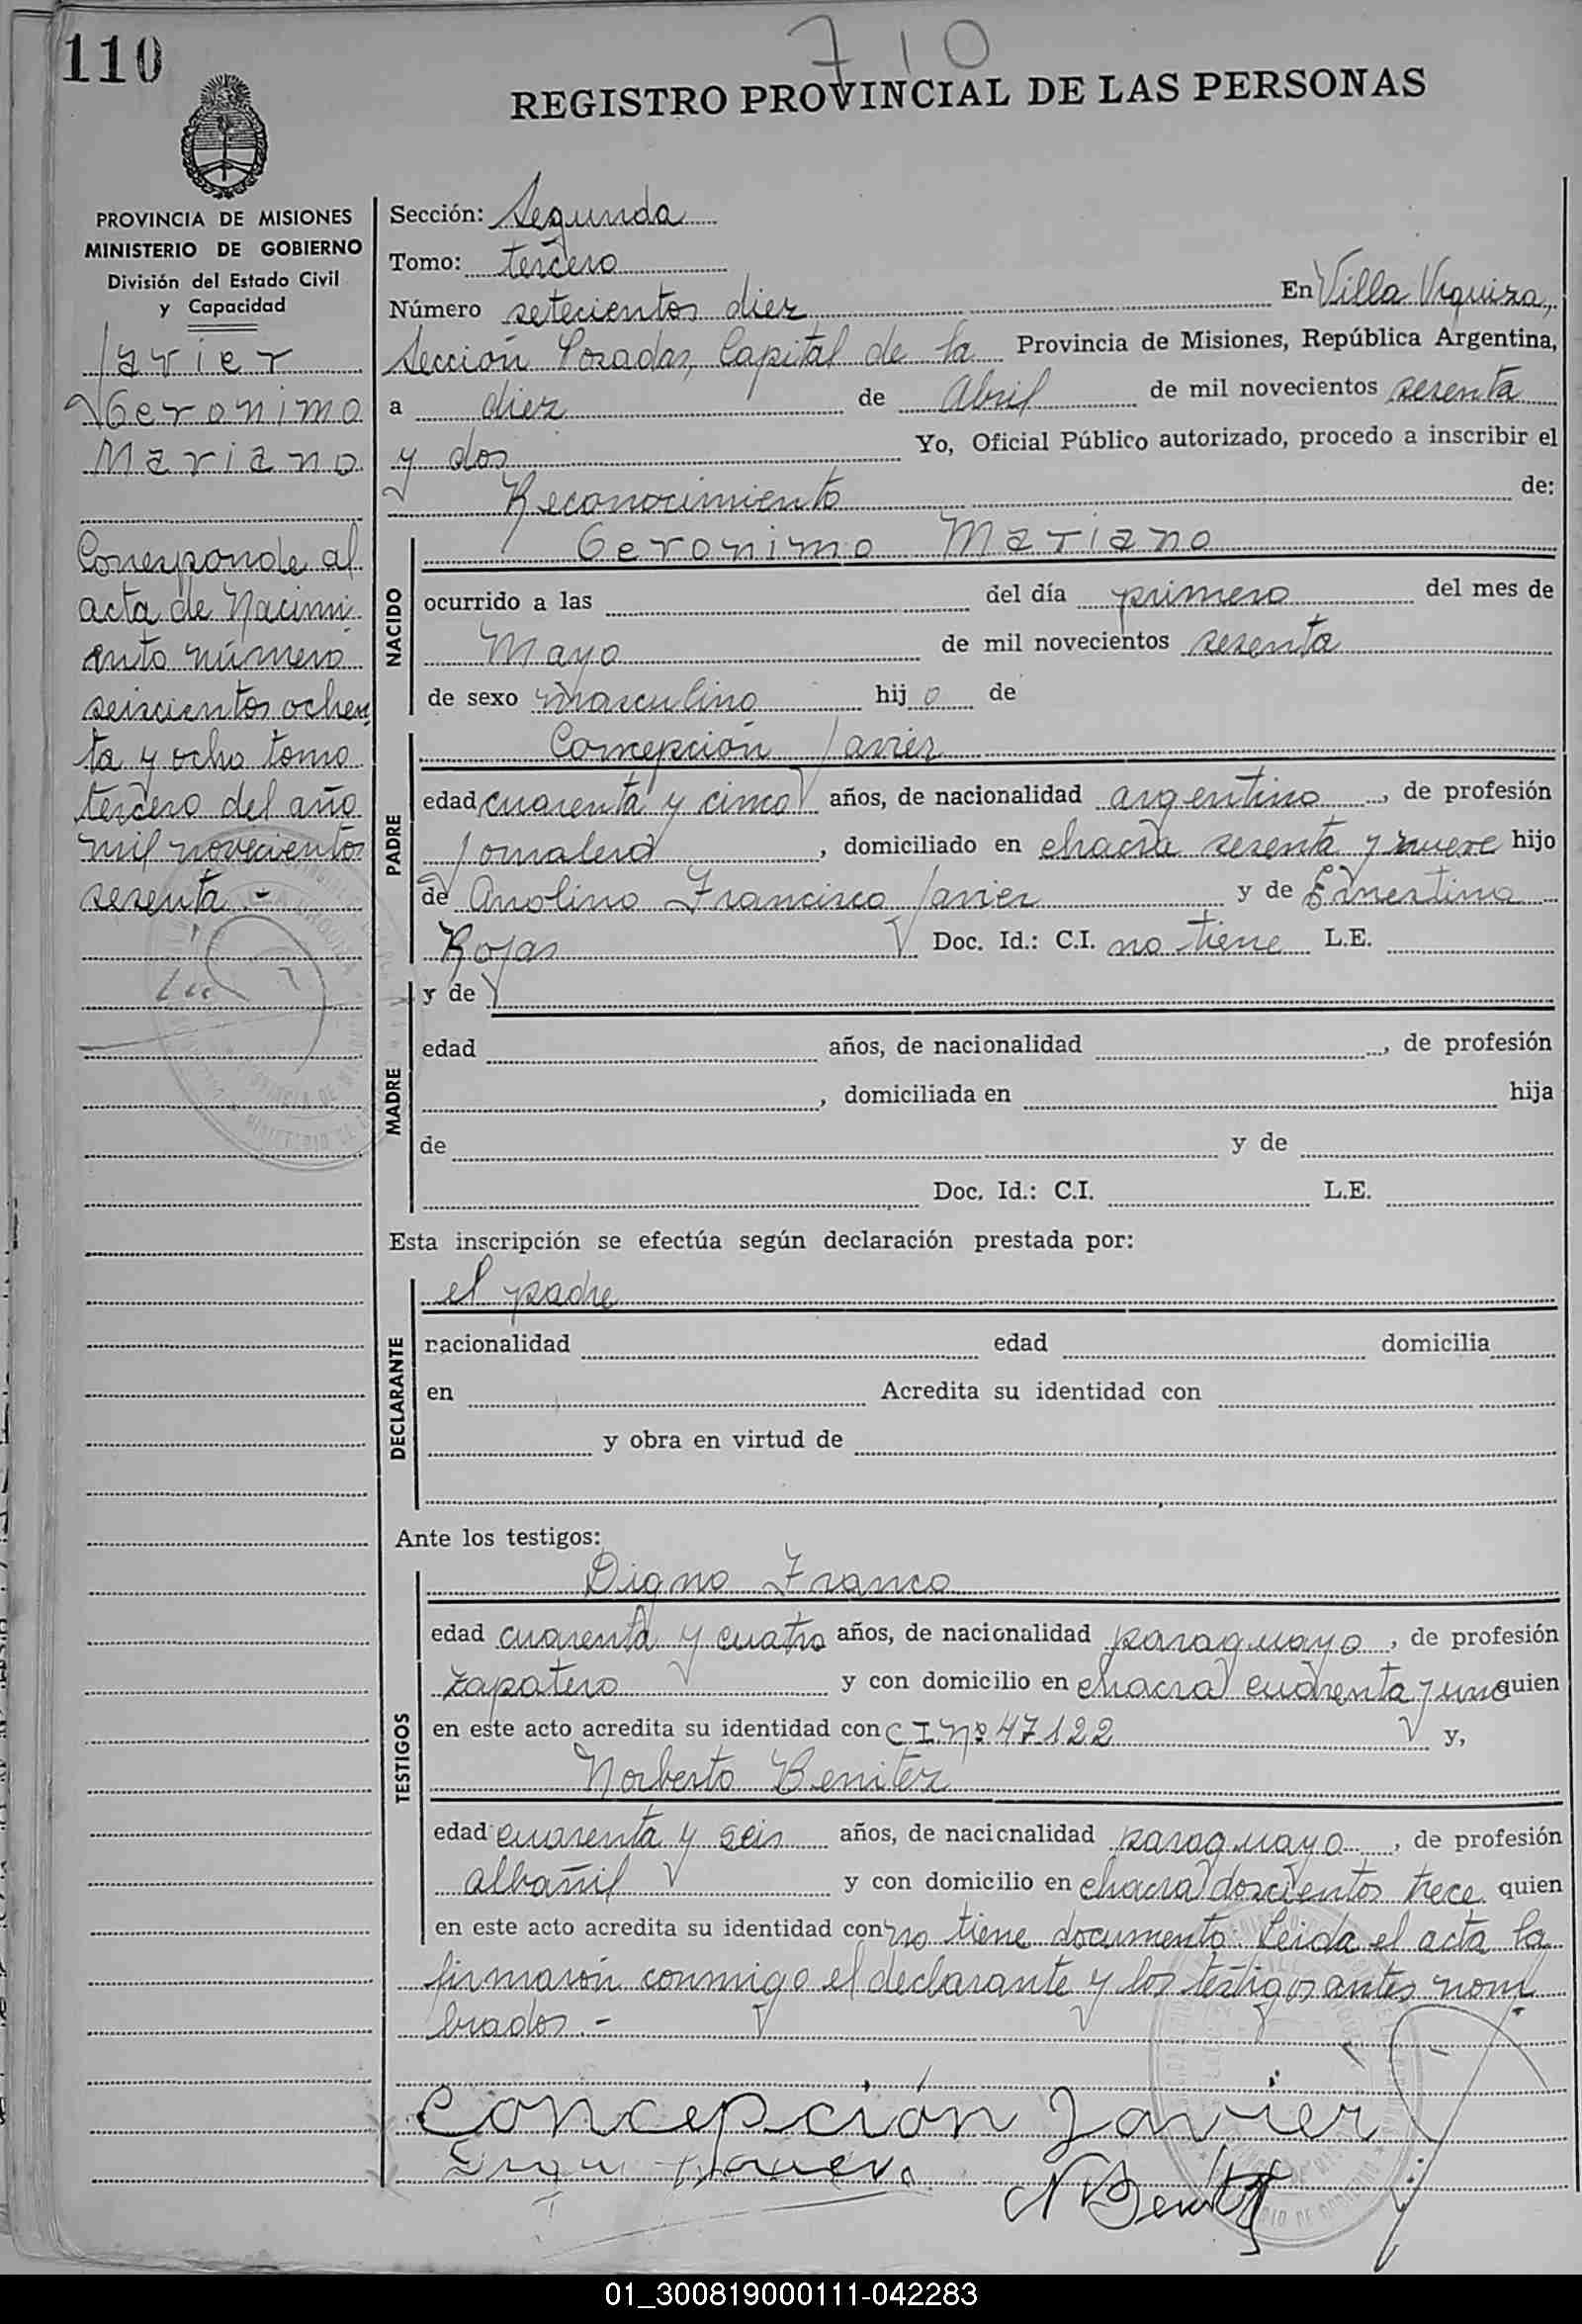 110
710
REGISTRO PROVINCIAL DE LAS PERSONAS
PROVINCIA DE MISIONES
MINISTERIO DE GOBIERNO
División del Estado Civil
y Capacidad
Javier
Geronimo
Mariano
Corresponde al
acta de Nacimi
ento número
seiscientos ochen
ta y ocho tomo
tercero del año
mil novecientos
sesenta.-
Sección: Segunda
Tomo: tercero
Número setecientos diez En Villa Urquiza,
Sección Posadas, Capital de la Provincia de Misiones, República Argentina,
a diez de Abril de mil novecientos sesenta
y dos Yo, Oficial Público autorizado, procedo a inscribir el
Reconocimiento de:
NACIDO
Geronimo Mariano
ocurrido a las del día primero del mes de
Mayo de mil novecientos sesenta
de sexo masculino hijo de
PADRE
Concepción Javier
edad cuarenta y cinco años, de nacionalidad argentino, de profesión
Jornalero, domiciliado en chacra sesenta y nueve hijo
de Francisco Javier y de Ernestina
Rojas Doc. Id.: C.I. no tiene L.E.
MADRE
y de
edad años, de nacionalidad , de profesión
, domiciliada en hija
de y de
Doc. Id.: C.I. L.E.
Esta inscripción se efectúa según declaración prestada por:
DECLARANTE
el padre
nacionalidad edad domicilia
en Acredita su identidad con
y obra en virtud de
Ante los testigos:
TESTIGOS
Digno Franco
edad cuarenta y cuatro años, de nacionalidad paraguayo, de profesión
zapatero y con domicilio en chacra cuarenta y uno quien
en este acto acredita su identidad con C.I. Nº 47122 y,
Norberto Benitez
edad cuarenta y seis años, de nacionalidad paraguayo, de profesión
albañil y con domicilio en chacra doscientos trece quien
en este acto acredita su identidad con no tiene documento. Leida el acta la
firmaron conmigo el declarante y los testigos antes nom
brados.-
Concepción Javier
N Benitez
01_300819000111-042283